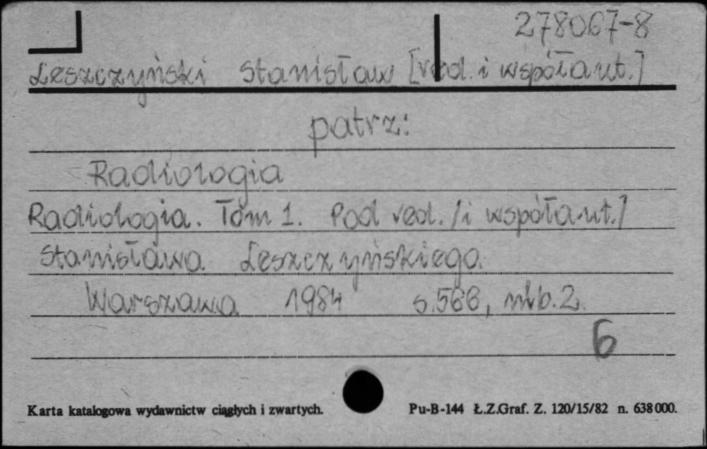 278067-8
Leszczyński Stanisław [red. i współaut.]
patrz:
Radiologia
Radiologia. Tom 1. Pod red. /i współaut./
Stanisława Leszczyńskiego.
Warszawa 1984 s.566, nlb.2.
6
Karta katalogowa wydawnictw ciągłych i zwartych. Pu-B-144 Ł.Z.Graf. Z. 120/15/82 n. 638000.